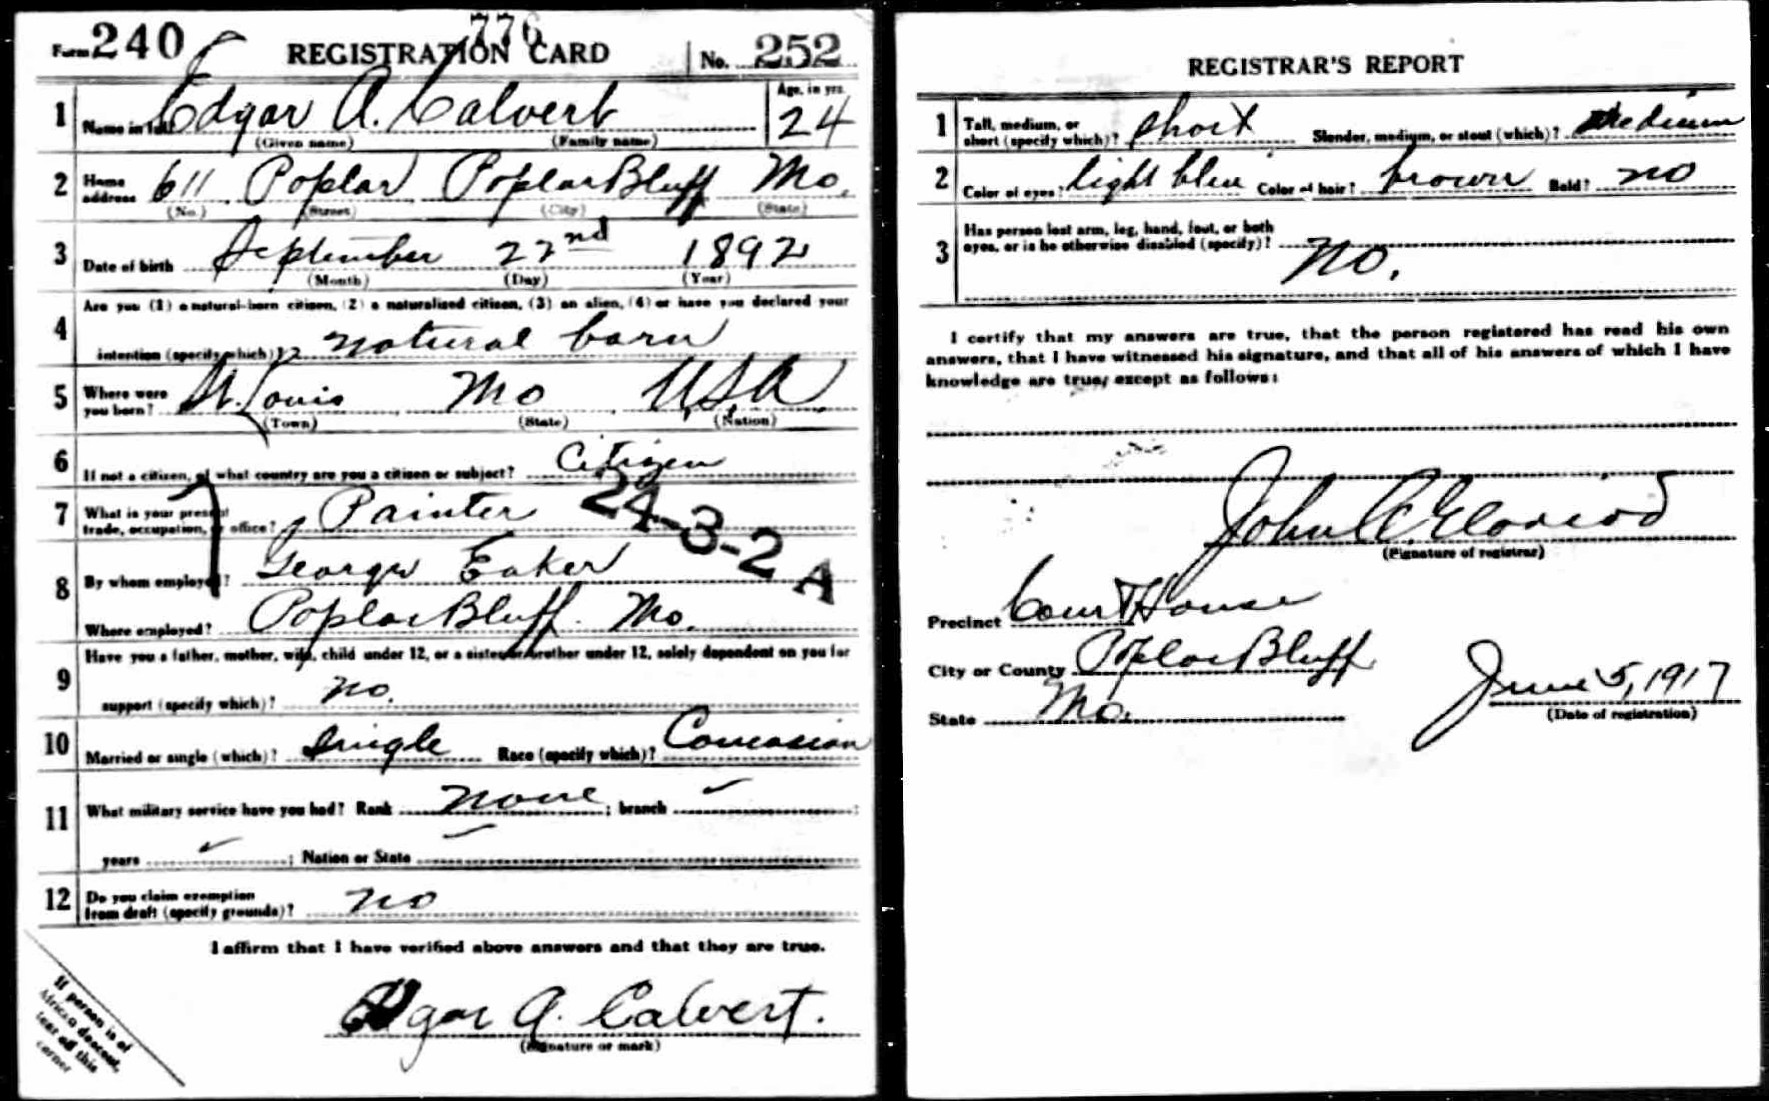 Form 240 776 REGISTRATION CARD No. 252
1 Name in full Edgar A. Calvert Age, in yrs. 24
(Given name) (Family name)
2 Home address 611 Poplar Poplar Bluff Mo.
(No.) (Street) (City) (State)
3 Date of birth September 22nd 1892
(Month) (Day) (Year)
4 Are you (1) a natural-born citizen, (2) a naturalized citizen, (3) an alien, (4) or have you declared your
intention (specify which)? natural born
5 Where were you born? St. Louis Mo USA
(Town) (State) (Nation)
6 If not a citizen, of what country are you a citizen or subject? Citizen
7 What is your present trade, occupation, or office? Painter 24-3-2 A
8 By whom employed? George Eaker
Where employed? Poplar Bluff. Mo.
9 Have you a father, mother, wife, child under 12, or a sister or brother under 12, solely dependent on you for
support (specify which)? no.
10 Married or single (which)? Single Race (specify which)? Caucasian
11 What military service have you had? Rank none ; branch
years ; Nation or State
12 Do you claim exemption from draft (specify grounds)? no
I affirm that I have verified above answers and that they are true.
Edgar A. Calvert.
(Signature or mark)
If person is of
African descent,
tear off this
corner
REGISTRAR'S REPORT
1 Tall, medium, or short (specify which)? short Slender, medium, or stout (which)? medium
2 Color of eyes? light blue Color of hair? brown Bald? no
3 Has person lost arm, leg, hand, foot, or both
eyes, or is he otherwise disabled (specify)? no.
I certify that my answers are true, that the person registered has read his own
answers, that I have witnessed his signature, and that all of his answers of which I have
knowledge are true, except as follows:
John C.
(Signature of registrar)
Precinct Court House
City or County Poplar Bluff
State Mo. June 5, 1917
(Date of registration)